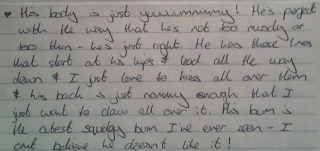 ♥ His body is just yuuuummmmy! He's perfect
with the way that he's not too muscly or
too thin - he's just right. He has those lines
that start at his hips & lead all the way
down & I just love to kiss all over them
& his back is just nommy enough that I
just want to claw all over it. His bum is
the cutest squidgy bum I've ever seen - I
cant believe he doesn't like it!